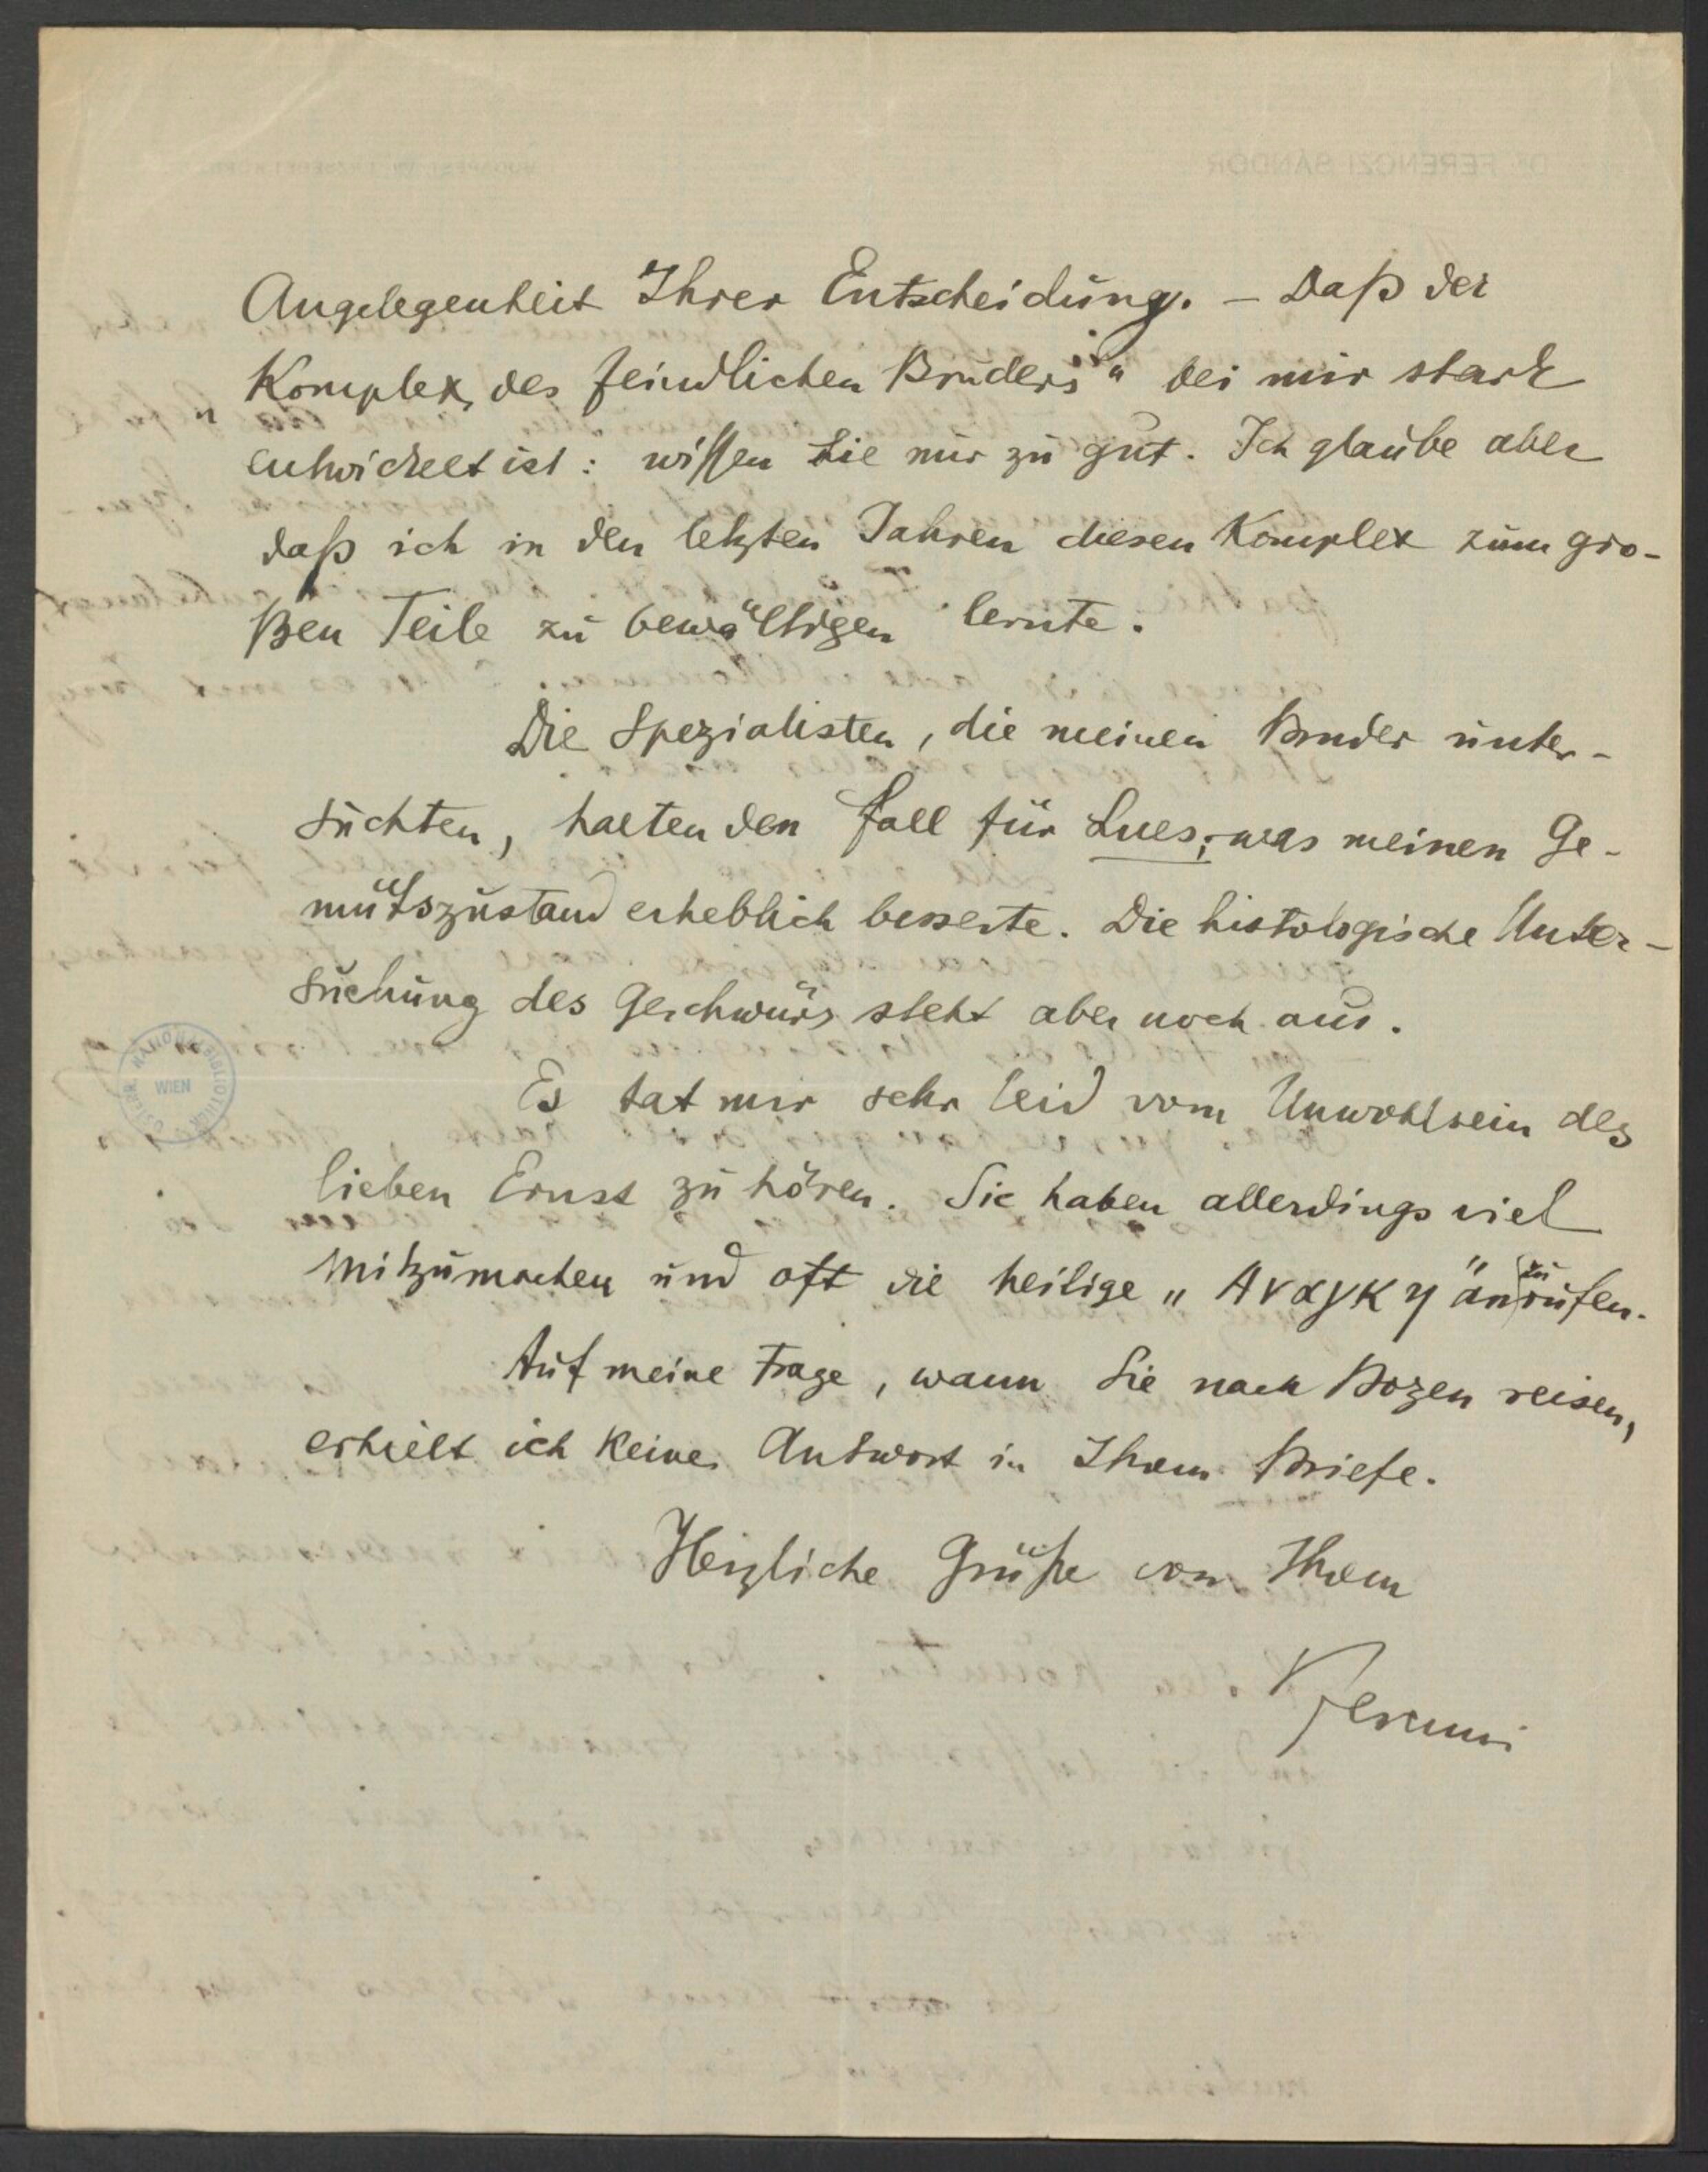 Angelegenheit Ihrer Entscheidung. – Daß der
Komplex „des feindlichen Bruders“ bei mir stark
entwickelt ist: wissen Sie nur zu gut. Ich glaube aber
daß ich in den letzten Jahren diesen Komplex zum gro-
ßen Teile zu bewältigen lernte.
Die Spezialisten, die meinen Bruder unter-
suchten, halten den Fall für Lues; was meinen Ge-
mütszustand erheblich besserte. Die histologische Unter-
suchung des Geschwürs steht aber noch aus.
Es tat mir sehr leid vom Unwohlsein des
lieben Ernst zu hören. Sie haben allerdings viel
mitzumachen und oft die heilige „Αναγκη“ anzurufen.
Auf meine Frage, wann Sie nach Bozen reisen,
erhielt ich keine Antwort in Ihrem Briefe.
Herzliche Grüße von Ihrem
Ferenczi
WIEN